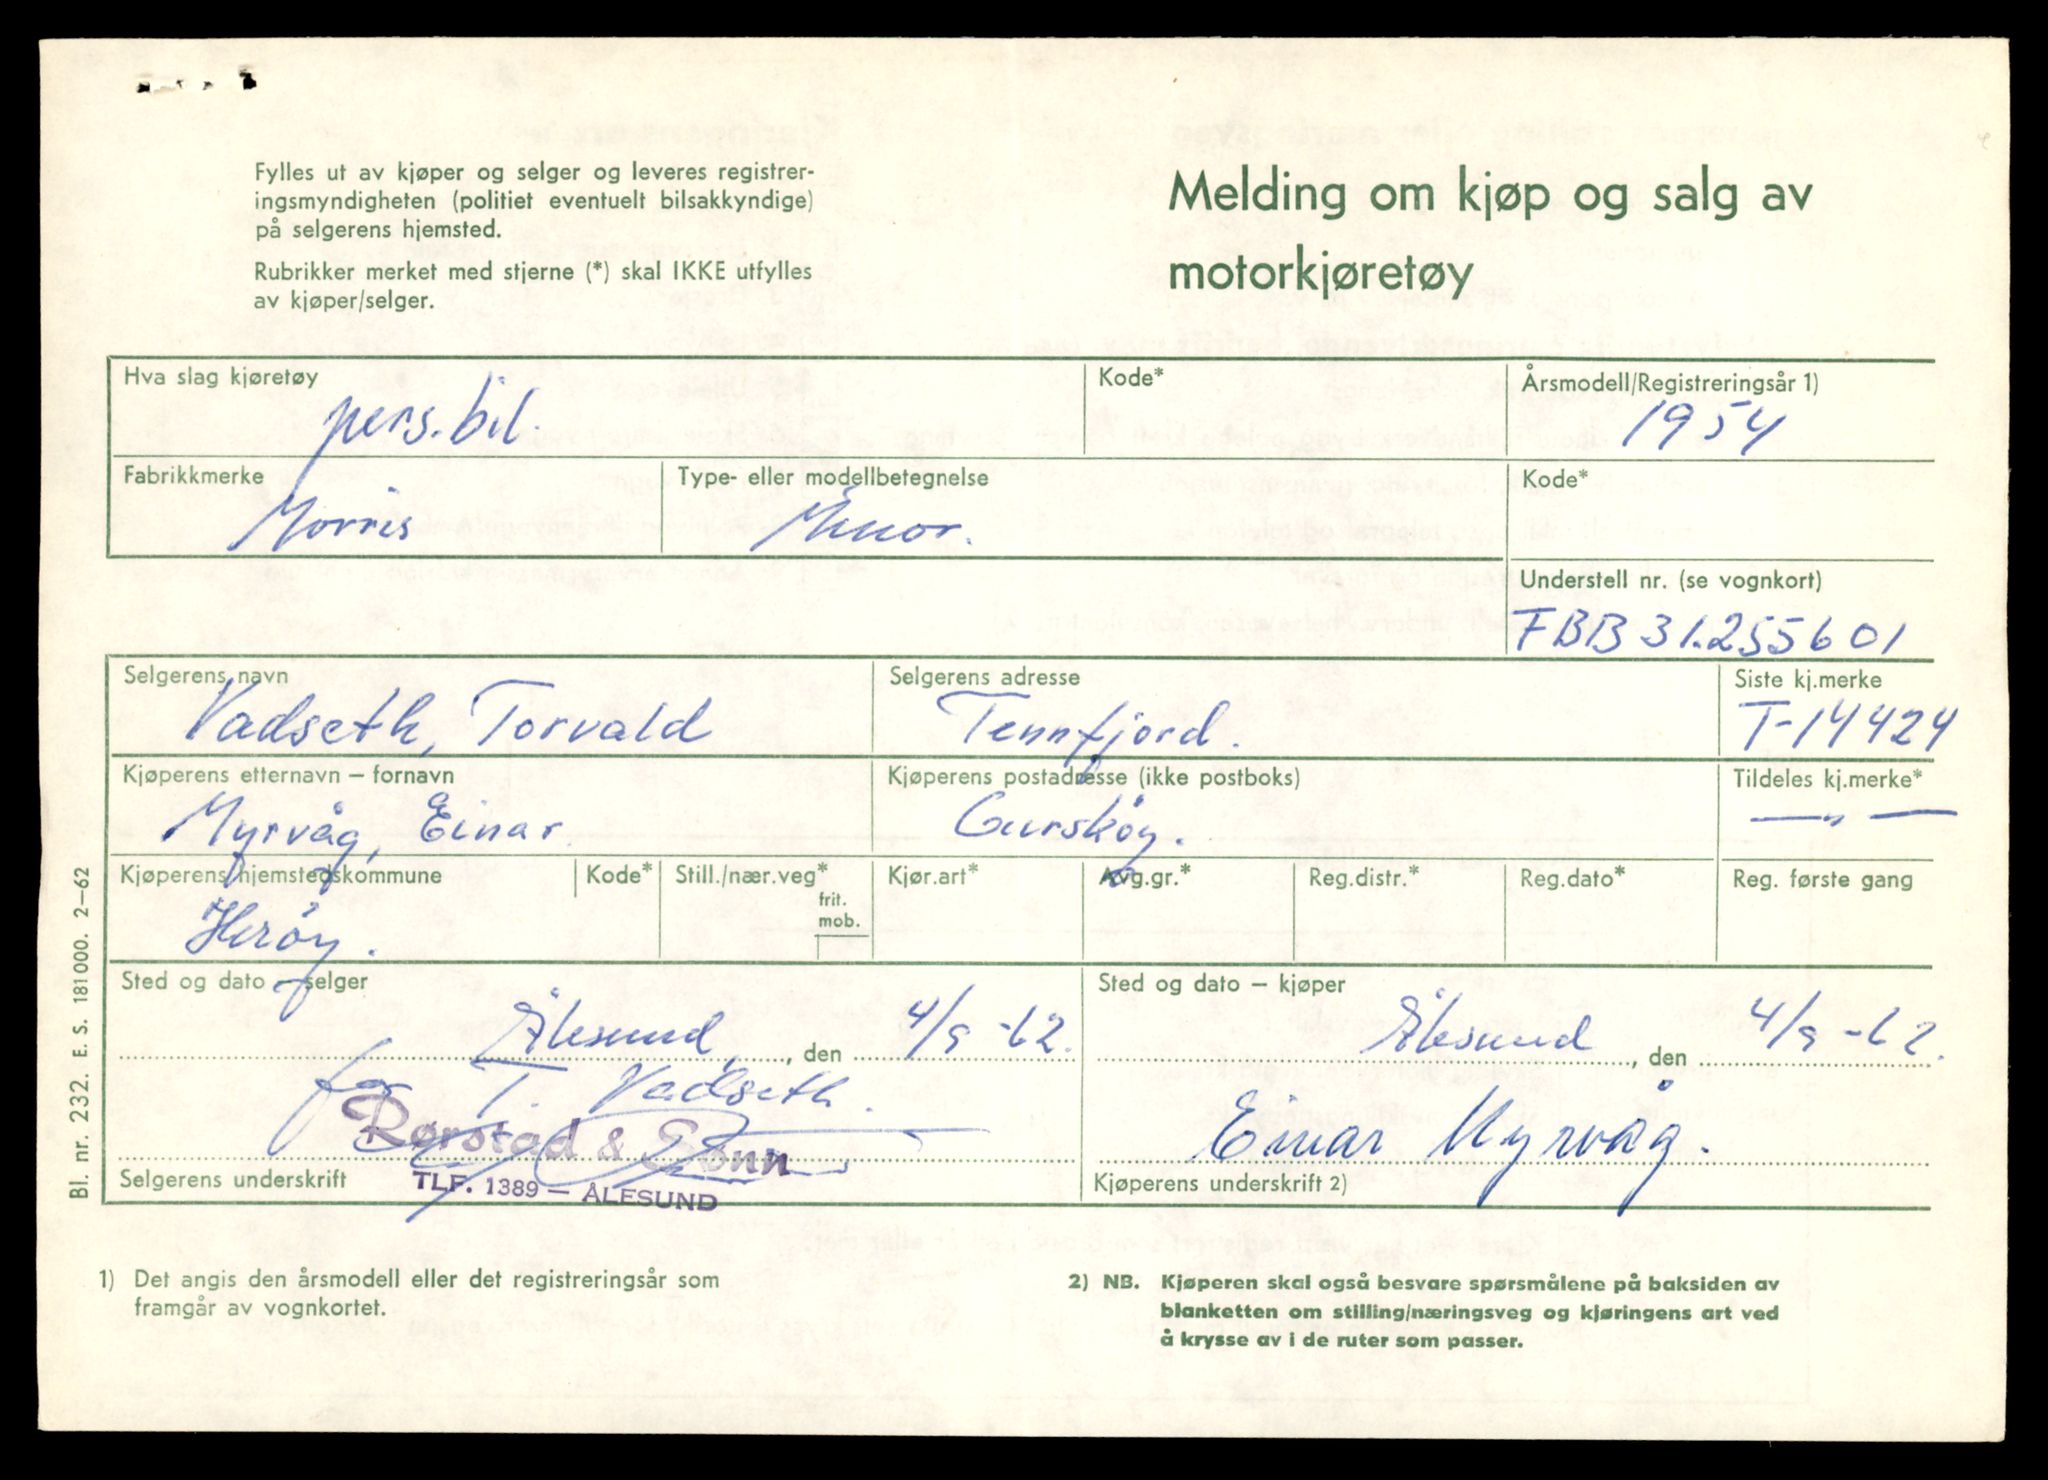 Fylles ut av kjøper og selger og leveres registrer-
ingsmyndigheten (politiet eventuelt bilsakkyndige)
på selgerens hjemsted.
Rubrikker merket med stjerne (*) skal IKKE utfylles
av kjøper/selger.
Melding om kjøp og salg av
motorkjøretøy
Hva slag kjøretøy
pers.bil.
Kode*
Årsmodell/Registreringsår 1)
1954
Fabrikkmerke
Morris
Type- eller modellbetegnelse
Minor.
Kode*
Understell nr. (se vognkort)
FBB 31.255601
Selgerens navn
Vadseth, Torvald
Selgerens adresse
Tennfjord.
Siste kj.merke
T-14424
Kjøperens etternavn – fornavn
Myrvåg, Einar.
Kjøperens postadresse (ikke postboks)
Gurskøy.
Tildeles kj.merke*
— „ —
Kjøperens hjemstedskommune
Herøy.
Kode*
Still./nær.veg*
frit.
mob.
Kjør.art*
Avg.gr.*
Reg.distr.*
Reg.dato*
Reg. første gang
Sted og dato – selger
Ålesund, den 4/9 -62.
for T. Vadseth.
Rørstad & Sønn
TLF. 1389 — ÅLESUND
Selgerens underskrift
Sted og dato – kjøper
Ålesund, den 4/9 -62.
Einar Myrvåg.
Kjøperens underskrift 2)
Bl. nr. 232. E. S. 181000. 2–62
1) Det angis den årsmodell eller det registreringsår som
framgår av vognkortet.
2) NB. Kjøperen skal også besvare spørsmålene på baksiden av
blanketten om stilling/næringsveg og kjøringens art ved
å krysse av i de ruter som passer.